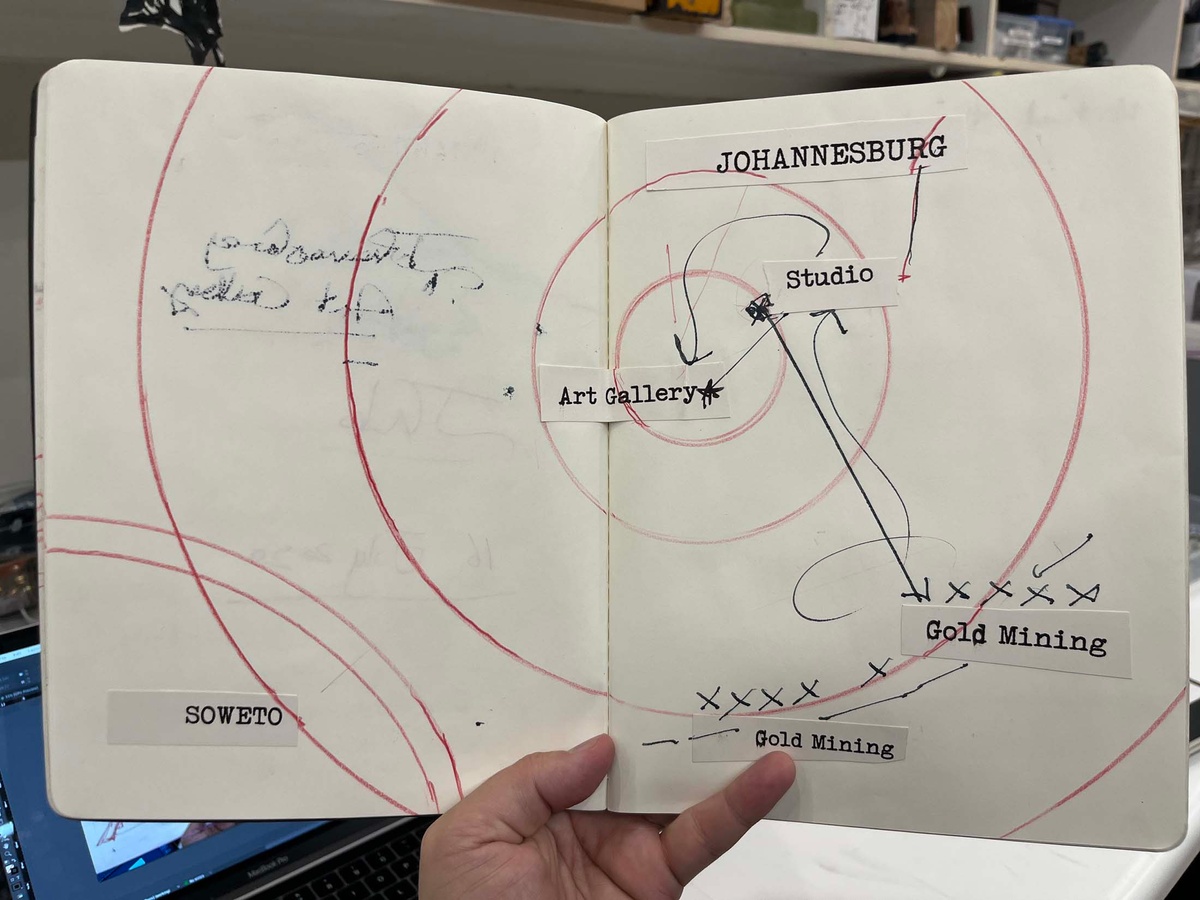 JOHANNESBURG
Studio
Art Gallery
x x x x
Gold Mining
x x x x x
SOWETO
Gold Mining
MacBook Pro